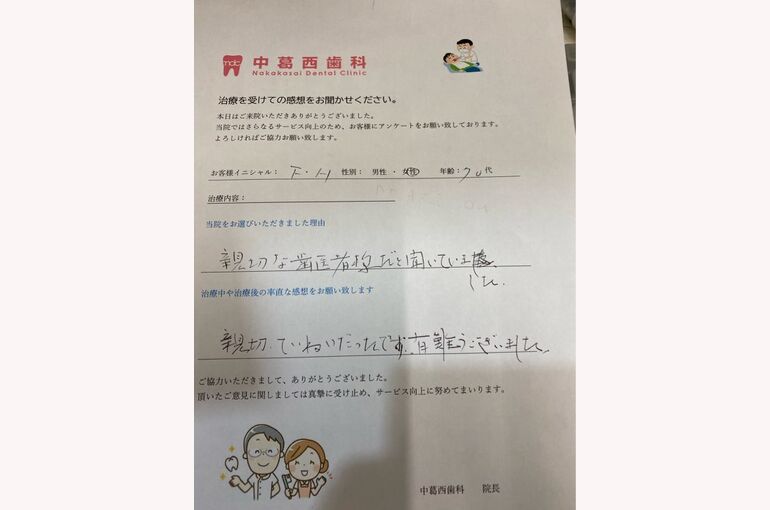 ndc
中葛西歯科
Nakakasai Dental Clinic
治療を受けての感想をお聞かせください。
本日はご来院いただきありがとうございました。
当院ではさらなるサービス向上のため、お客様にアンケートをお願い致しております。
よろしければご協力お願い致します。
お客様イニシャル： 性別： 男性 ・ 女性 年齢：70代
治療内容：
当院をお選びいただきました理由
親切な歯医者様だと聞いていま
した。
治療中や治療後の率直な感想をお願い致します
親切、ていねいだったです。有難うございました
ご協力いただきまして、ありがとうございました。
頂いたご意見に関しましては真摯に受け止め、サービス向上に努めてまいります。
中葛西歯科 院長